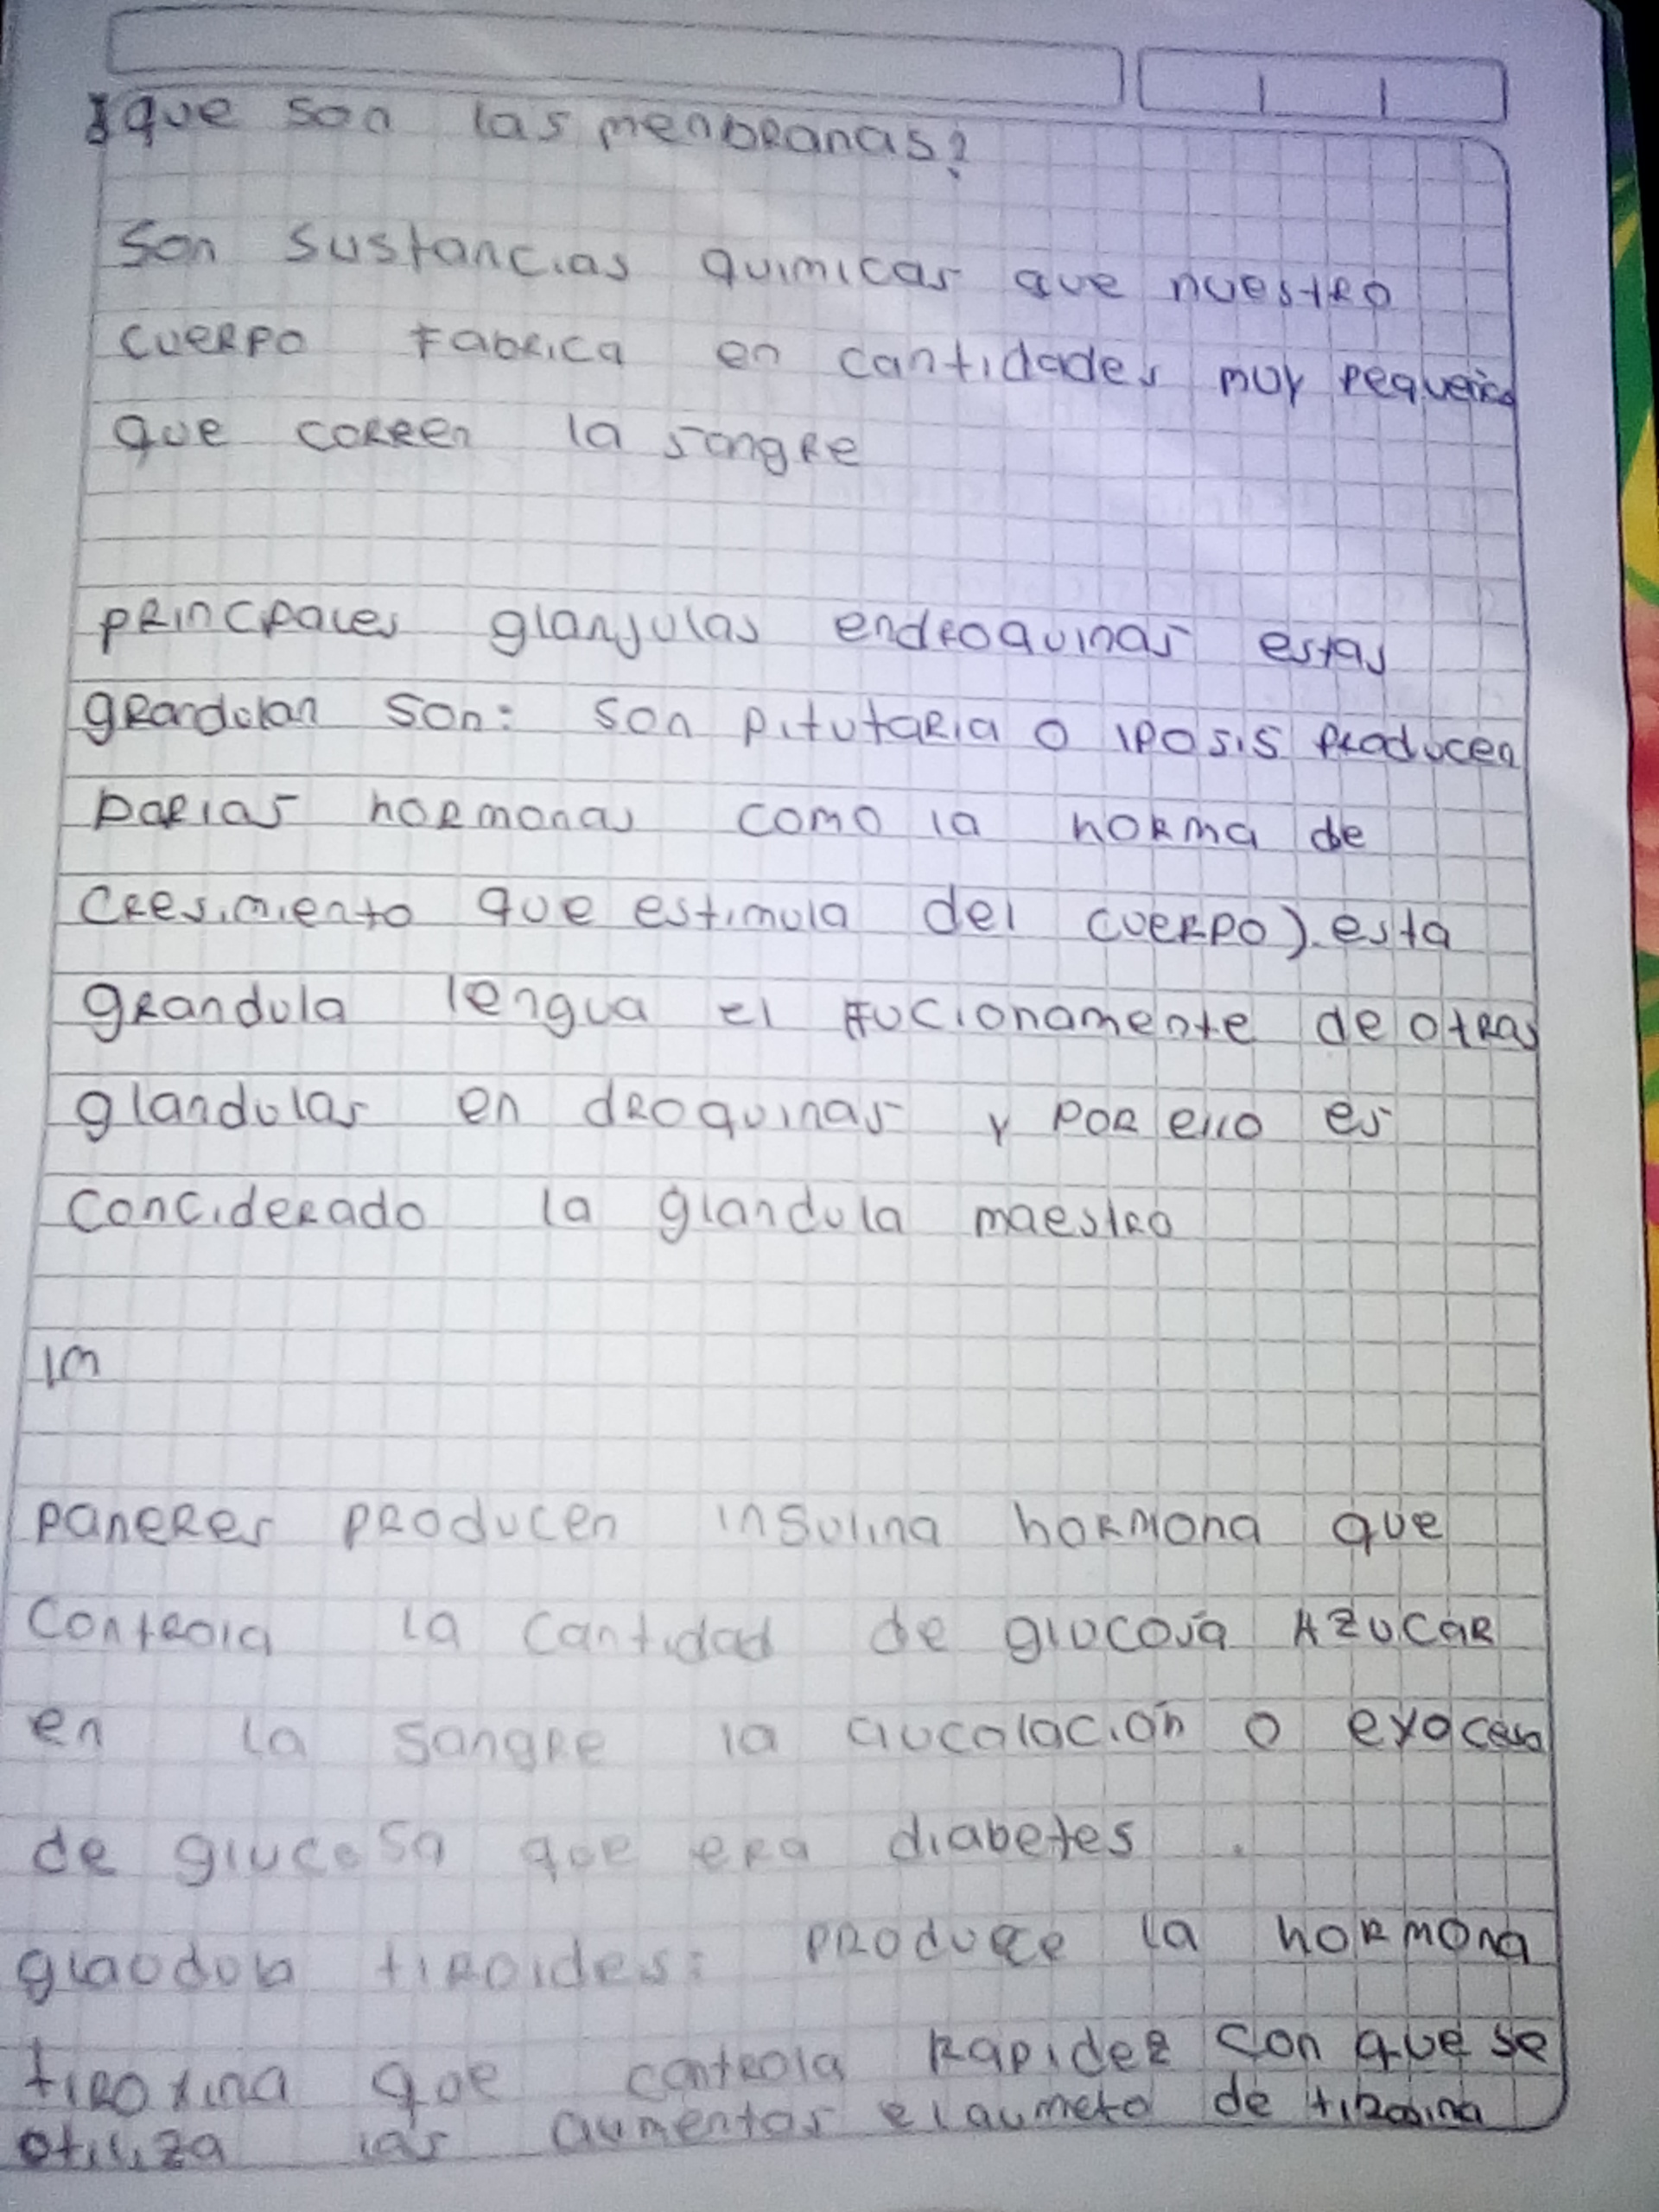 ¿que son las menbranas?
Son sustancias quimicas que nuestro
cuerpo Fabrica en cantidades muy pequeñas
que correr la sangre
princpales glanjulas endroquinas estas
grandulan son: son pitutaria o iposis producen
barias hormonas como la horma de
cresimiento que estimula del cuerpo). esta
grandula lengua el Fucionamente de otras
glandulas en droquinas y por ello es
conciderado la glandula maestra
im
paneres producen insulina hormona que
controla la cantidad de glucosa Azucar
en la sangre la aucolación o
de glucosa que era diabetes.
glaodula tiroides: produce la hormona
tiroxina que controla rapidez con que se
otiliza las aumentos el aumeto de tirosina